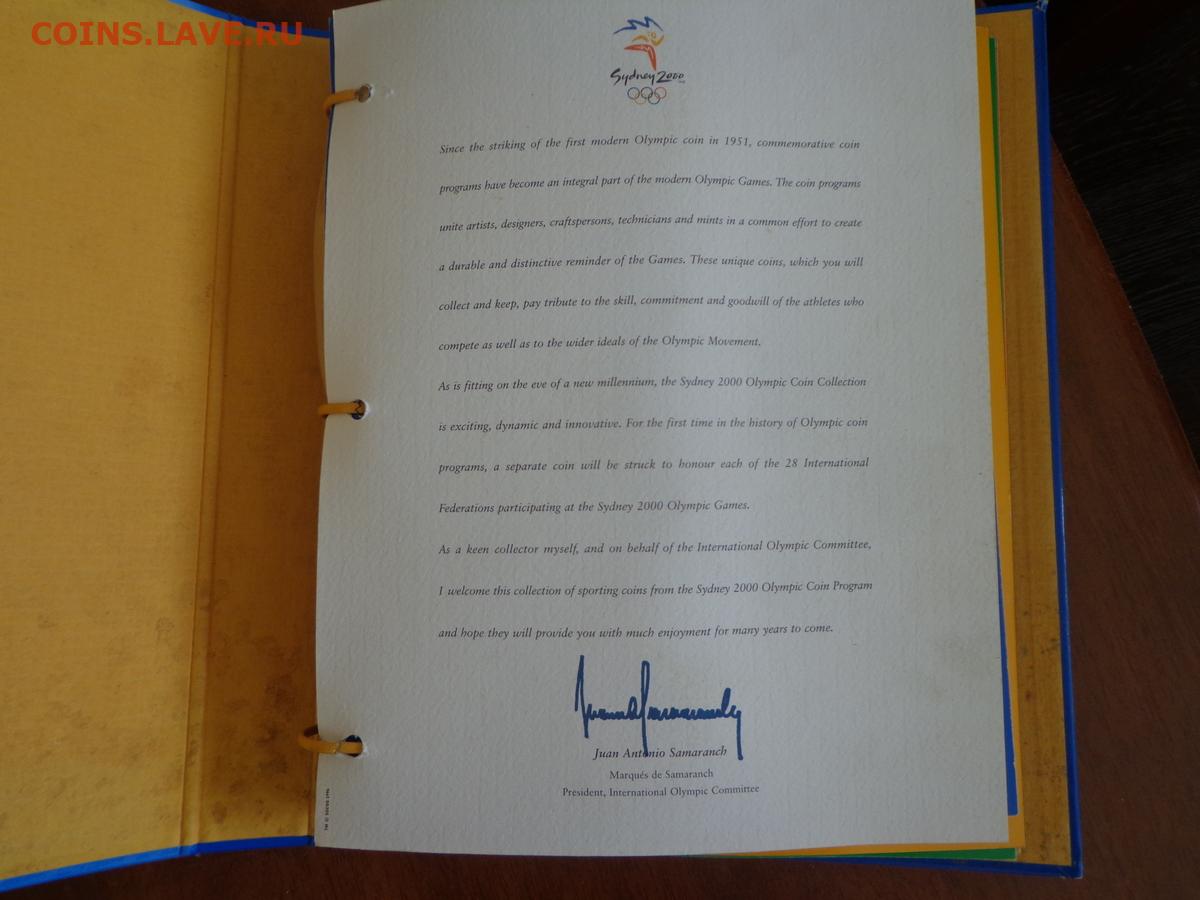 COINS.LAVE.RU
Sydney 2000
Since the striking of the first modern Olympic coin in 1951, commemorative coin
programs have become an integral part of the modern Olympic Games. The coin programs
unite artists, designers, craftspersons, technicians and mints in a common effort to create
a durable and distinctive reminder of the Games. These unique coins, which you will
collect and keep, pay tribute to the skill, commitment and goodwill of the athletes who
compete as well as to the wider ideals of the Olympic Movement.
As is fitting on the eve of a new millennium, the Sydney 2000 Olympic Coin Collection
is exciting, dynamic and innovative. For the first time in the history of Olympic coin
programs, a separate coin will be struck to honour each of the 28 International
Federations participating at the Sydney 2000 Olympic Games.
As a keen collector myself, and on behalf of the International Olympic Committee,
I welcome this collection of sporting coins from the Sydney 2000 Olympic Coin Program
and hope they will provide you with much enjoyment for many years to come.
Juan Antonio Samaranch
Marqués de Samaranch
President, International Olympic Committee